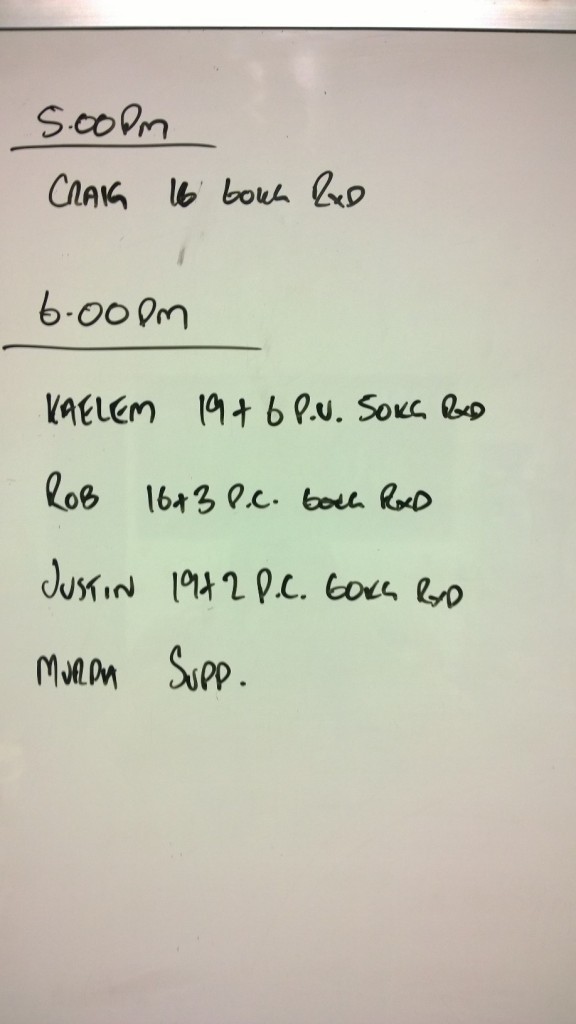 5.00PM
CRAIG 16 60KG RxD
6.00PM
KAELEM 19+6 P.U. 50KG RxD
ROB 16+3 P.C. 60KG RxD
JUSTIN 19+2 P.C. 60KG RxD
MURPH SUPP.